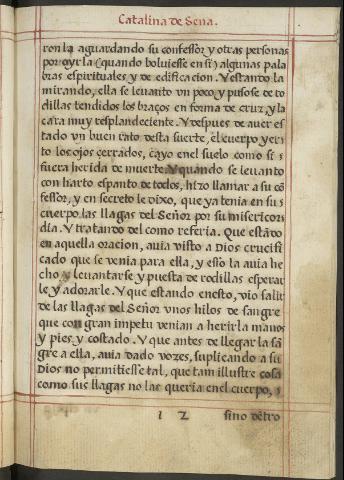 Catalina de Sena.
ron la aguardando su confessor y otras personas
por oyr la (quando boluiesse en si) algunas pala
bras espirituales y de edificacion. Y estando la
mirando, ella se leuanto un poco y pusose de ro
dillas tendidos los braços en forma de cruz, y la
cara muy resplandeciente. Y despues de auer es
tado un buen rato desta suerte, el cuerpo yer
to los ojos çerrados, cayo enel suelo como si
fuera herida de muerte. Y quando se leuanto
con harto espanto de todos, hizo llamar a su cõ
fessor, y en secreto le dixo, que ya tenia en su
cuerpo las llagas del Señor por su misericor
dia. Y tratando del como referia. Que estãdo
en aquella oracion, auia visto a Dios crucifi
cado que se venia para ella, y esso la auia he
cho leuantarse y puesta de rodillas esperar
le y adorarle. Y que estando enesto, vio salir
de las llagas del Señor vnos hilos de sangre
que con gran impetu venian a herirla manos
y pies y costado. Y que antes de llegar la sã
gre a ella, auia dado vozes, suplicando a su
Dios no permitiesse tal, que tam illustre cosa
como sus llagas no las queria enel cuerpo,
12 sino dẽtro